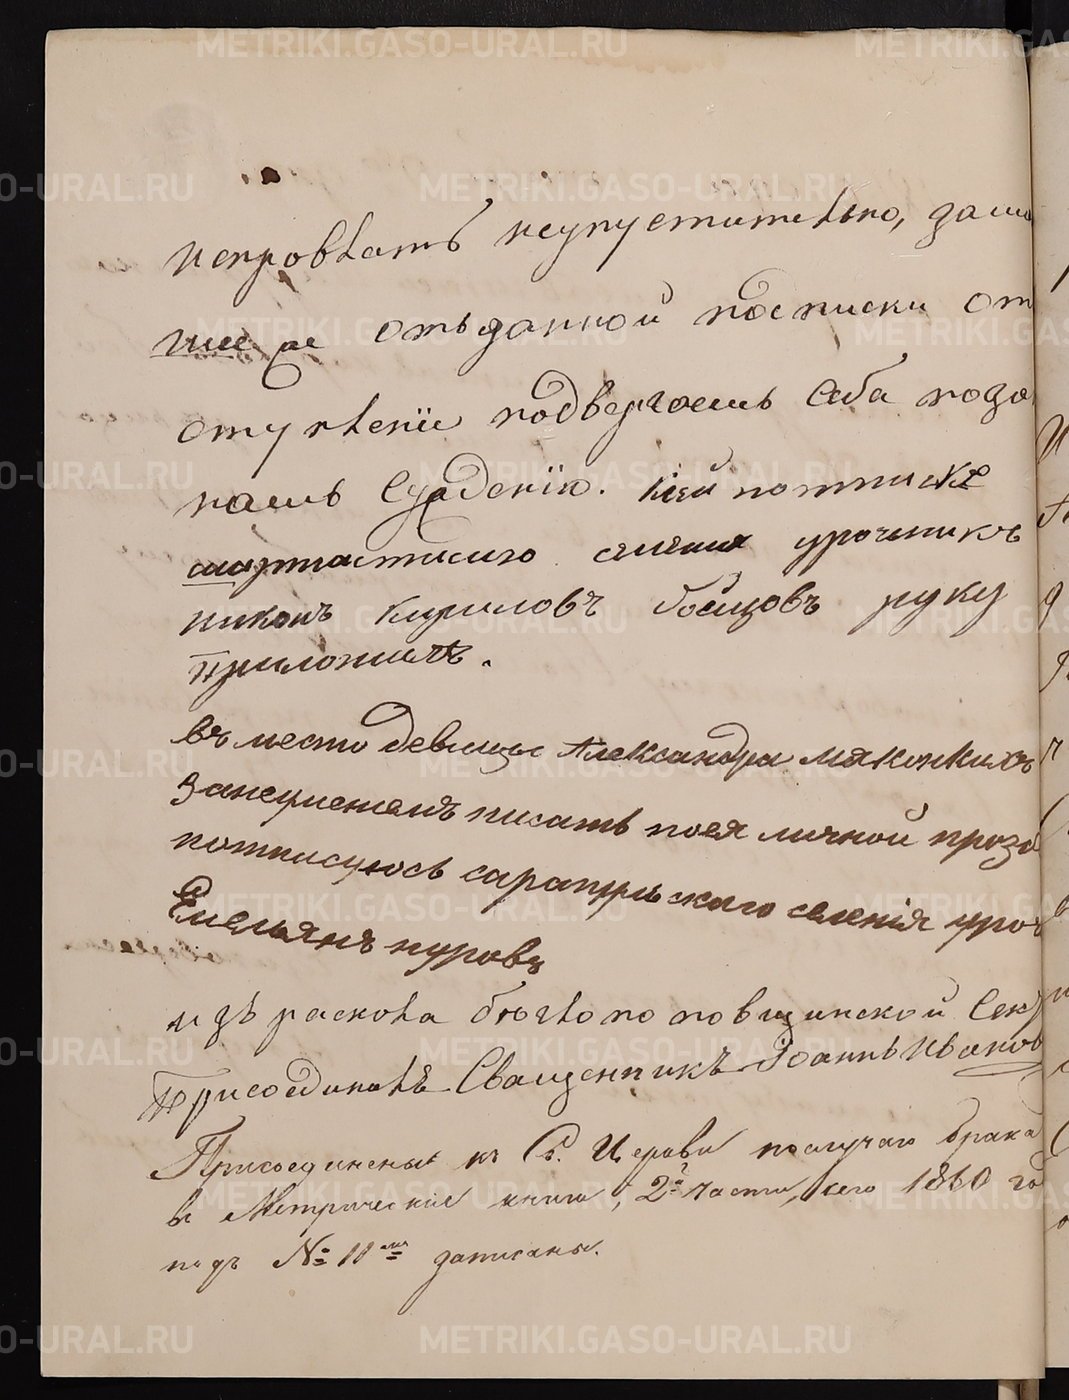 METRIKI.GASO-URAL.RU
исправлать неупустительно, за
отъ данной подписки от
отупленiи подвергаемъ себаподза
намъ Суждению. Ксей потписке
селения урочникъ
никонъ кириловъ бойцовъ руку
приложилъ.
въместо девицы Александры Мяконкихъ
занеуменемъ писать поея личной прозбе
потписуюсь сарапульского селенiя уроч
Емельянъ пуровъ
изъ раскола бѣглопоповщинской Сек
присоединилъ Священникъ Iоаннъ Иванов
Присоединены къ Св. Церкви послучаю брака
въ Метрическiе книги, 2й части, сего 1860 го
подъ № 11мъ записаны.